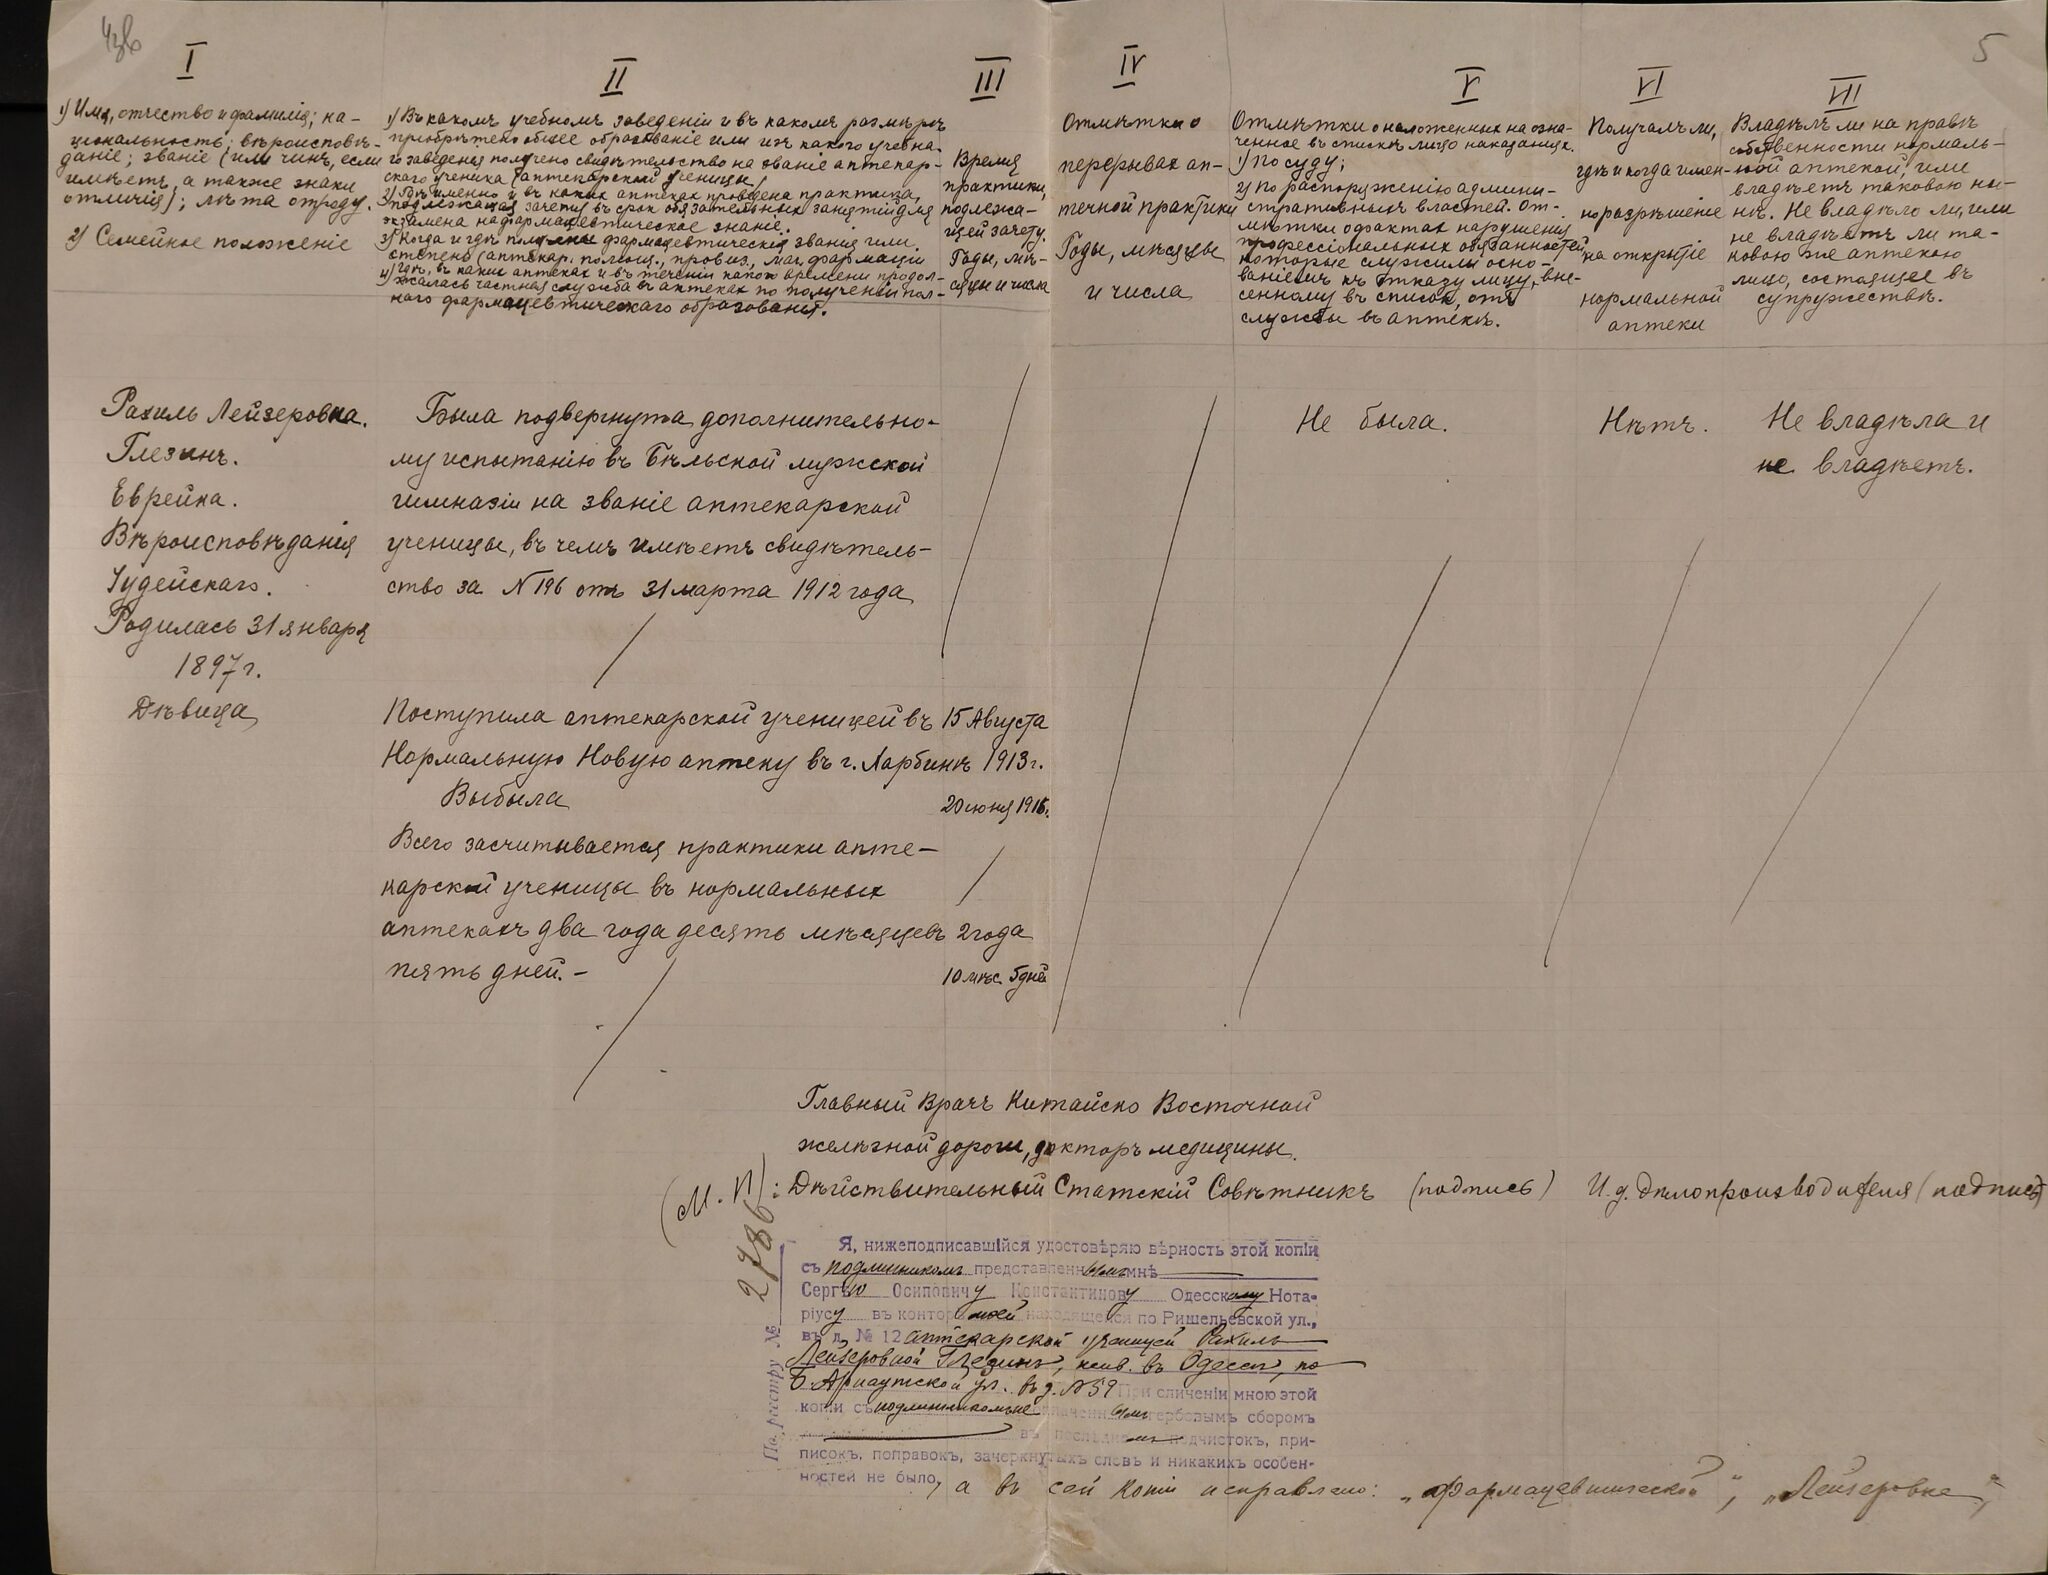 5
I
1) Имя, отчество и фамилія; на-
циональность; вѣроисповѣ-
даніе; званіе (или чинъ, если
имѣетъ, а также знаки
отличія); лѣта отроду.
2) Семейное положеніе
II
1) Въ какомъ учебномъ заведеніи и въ какомъ размѣрѣ
пріобрѣтено общее образованіе или изъ какого учебна-
го заведенія получено свидѣтельство на званіе аптекар-
скаго ученика (аптекарской ученицы)
2) Гдѣ именно и въ какихъ аптекахъ проведена практика,
подлежащая зачету въ срокъ обязательныхъ занятій для
экзамена на фармацевтическое званіе.
3) Когда и гдѣ получены фармацевтическія званія или
степени (аптекар. помощ., провиз., маг. фармаціи
4) Гдѣ, въ какихъ аптекахъ и въ теченіи какого времени продол-
жалась частная служба въ аптекахъ по полученіи пол-
наго фармацевтическаго образованія.
III
Время
практики,
подлежа-
щей зачету.
Годы, мѣ-
сяцы и числа
IV
Отмѣтки о
перерывахъ ап-
течной практики
Годы, мѣсяцы
и числа
V
Отмѣтки о наложенныхъ на озна-
ченное въ спискѣ лицо наказаніяхъ.
1) По суду;
2) По распоряженію админи-
стративныхъ властей. От-
мѣтки о фактахъ нарушенія
профессіональныхъ обязанностей,
которые служили осно-
ваніемъ къ отказу лицу, вне-
сенному въ списокъ, отъ
службы въ аптекѣ.
VI
Получалъ ли,
гдѣ и когда имен-
но разрѣшеніе
на открытіе
нормальной
аптеки
VII
Владѣлъ ли на правѣ
собственности нормаль-
ной аптекой, или
владѣетъ таковою ны-
нѣ. Не владѣло ли, или
не владѣетъ ли та-
ковою же аптекою
лицо, состоящее въ
супружествѣ.
Рахиль Лейзеровна.
Глезинъ.
Еврейка.
Вѣроисповѣданія
Іудейскаго.
Родилась 31 января
1897 г.
Дѣвица
Была подвергнута дополнительно-
му испытанію въ Бѣльской мужской
гимназіи на званіе аптекарской
ученицы, въ чемъ имѣетъ свидѣтель-
ство за N 196 отъ 31 марта 1912 года
Не была.
Нѣтъ.
Не владѣла и
не владѣетъ.
Поступила аптекарской ученицей въ 15 Августа
Нормальную Новую аптеку въ г. Харбинѣ 1913 г.
Выбыла 20 июня 1916 г.
Всего засчитывается практики апте-
карской ученицы въ нормальныхъ
аптекахъ два года десять мѣсяцевъ 2 года
пять дней. – 10 мѣс. 5 дней
Главный Врачъ Китайско Восточной
желѣзной дороги, докторъ медицины.
(М. П.): Дѣйствительный Статскій Совѣтникъ (подпись) И. д. Дѣлопроизводителя (подпись)
По реестру № 2786
Я, нижеподписавшійся удостовѣряю вѣрность этой копіи
съ подлинникомъ представленнымъ мнѣ
Сергѣю Осиповичу Константинову Одесскому Нота-
ріусу въ конторѣ моей находящейся по Ришельевской ул.,
въ д. № 12 аптекарской ученицей Рахиль
Лейзеровной Глезинъ, жив. въ Одессѣ, по
Б. Арнаутской ул. въ д. № 59 При сличеніи мною этой
копіи съ подлинникомъ не оплаченнымъ гербовымъ сборомъ
въ послѣднемъ подчистокъ, при-
писокъ, поправокъ, зачеркнутыхъ словъ и никакихъ особен-
ностей не было, а въ сей копіи исправлено: „фармацевтической“, „Лейзеровне“,